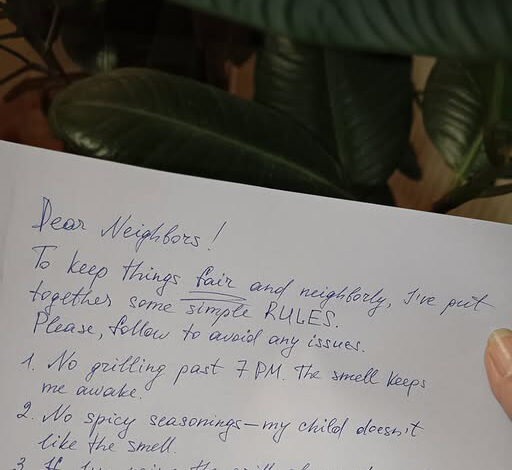 Dear Neighbors!
To keep things fair and neighborly, I've put
together some simple RULES.
Please, follow to avoid any issues.
1. No grilling past 7 PM. The smell keeps
me awake.
2. No spicy seasonings—my child doesn't
like the smell.
3.